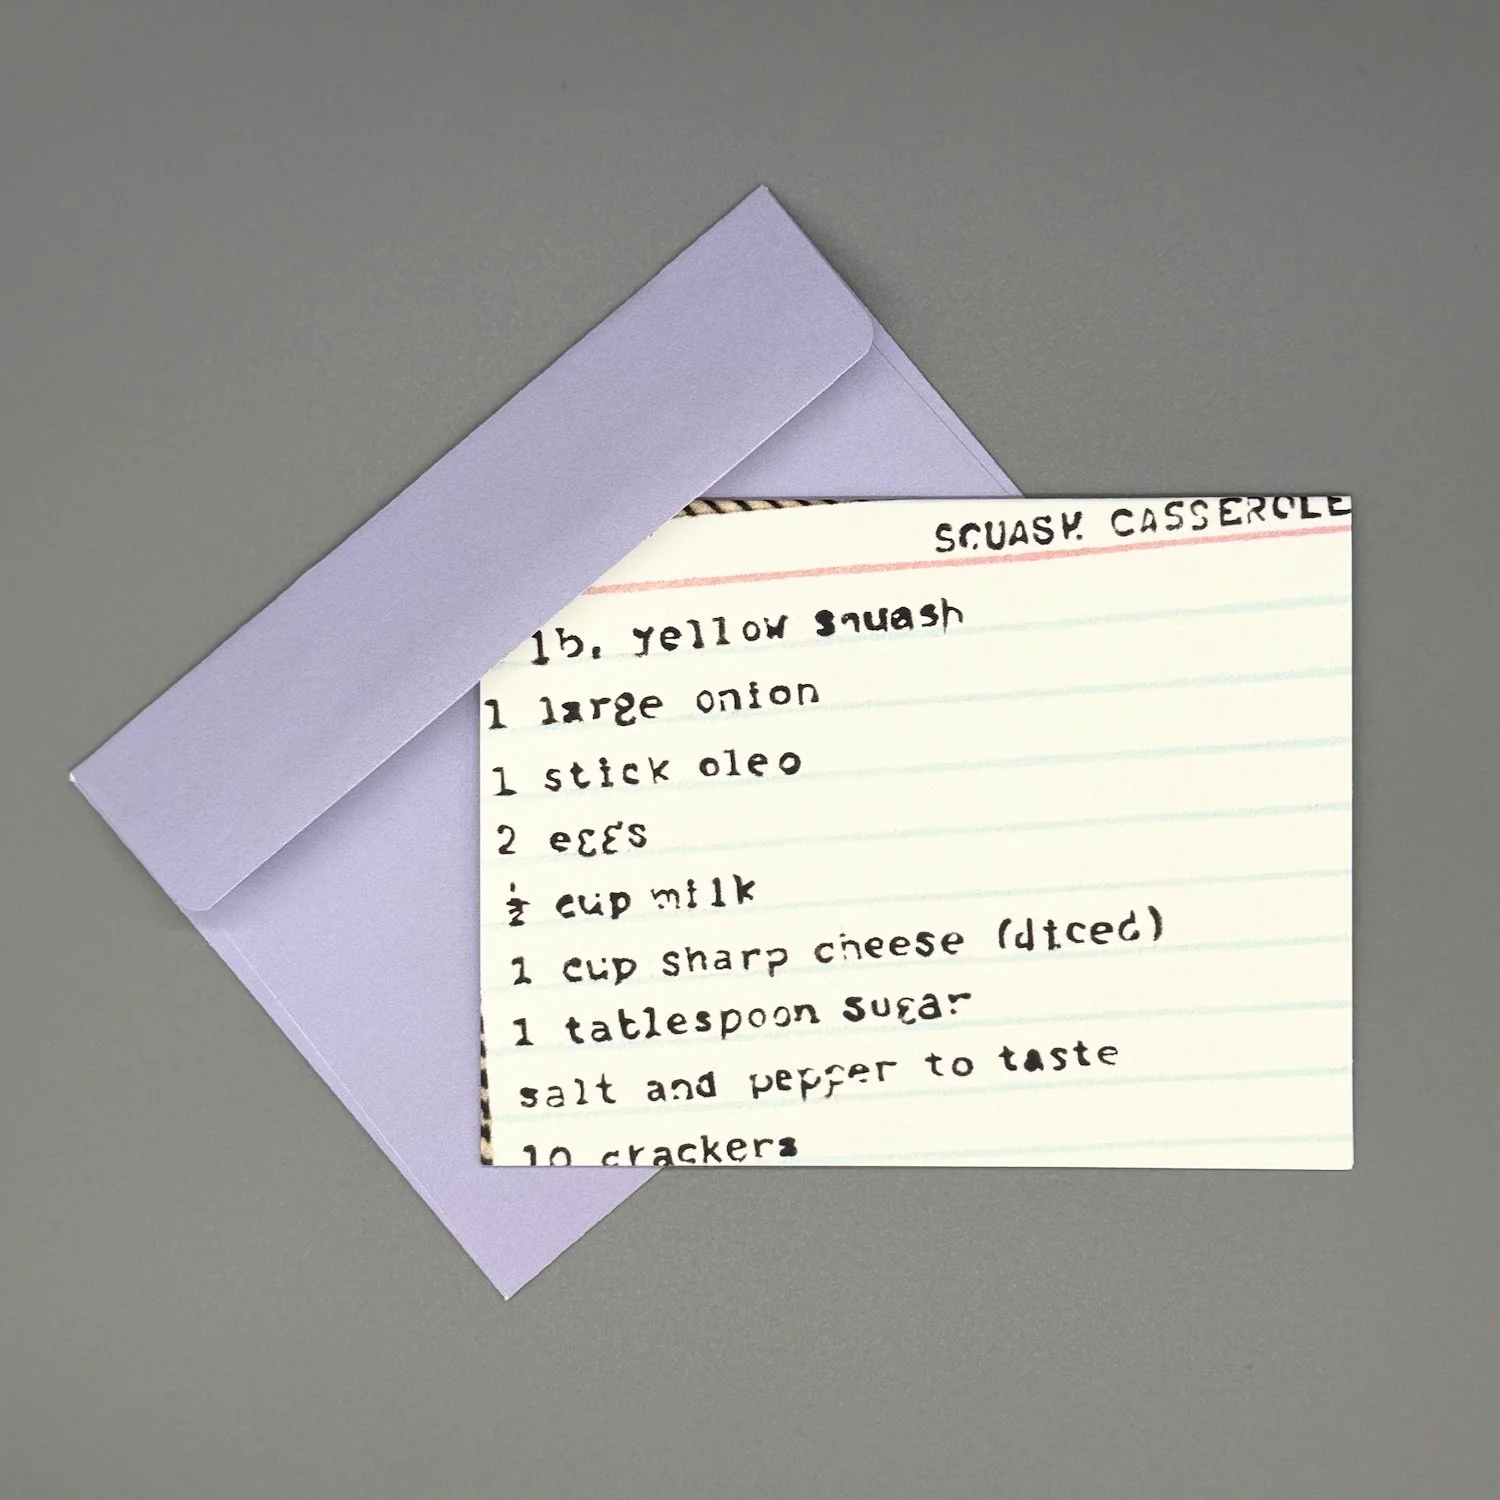 SQUASH CASSEROLE
lb. yellow squash
1 large onion
1 stick oleo
2 eggs
½ cup milk
1 cup sharp cheese (diced)
1 tablespoon sugar
salt and pepper to taste
10 crackers